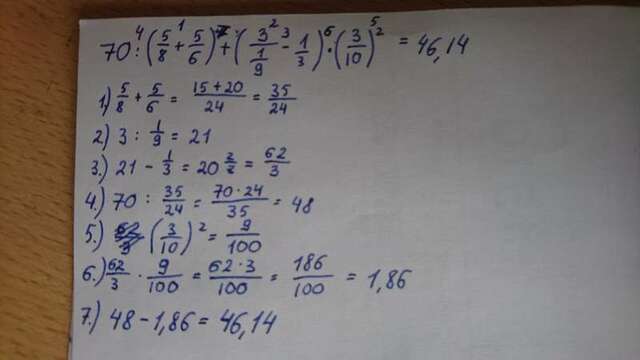 70 :⁴ (5/8 +¹ 5/6) +⁷ (3²/(1/9) -³ 1/3) ·⁶ (3/10)⁵ ² = 46,14
1.) 5/8 + 5/6 = (15+20)/24 = 35/24
2) 3 : 1/9 = 21
3.) 21 - 1/3 = 20 2/3 = 62/3
4.) 70 : 35/24 = (70·24)/35 = 48
5.) (3/10)² = 9/100
6.) 62/3 · 9/100 = (62·3)/100 = 186/100 = 1,86
7.) 48 - 1,86 = 46,14